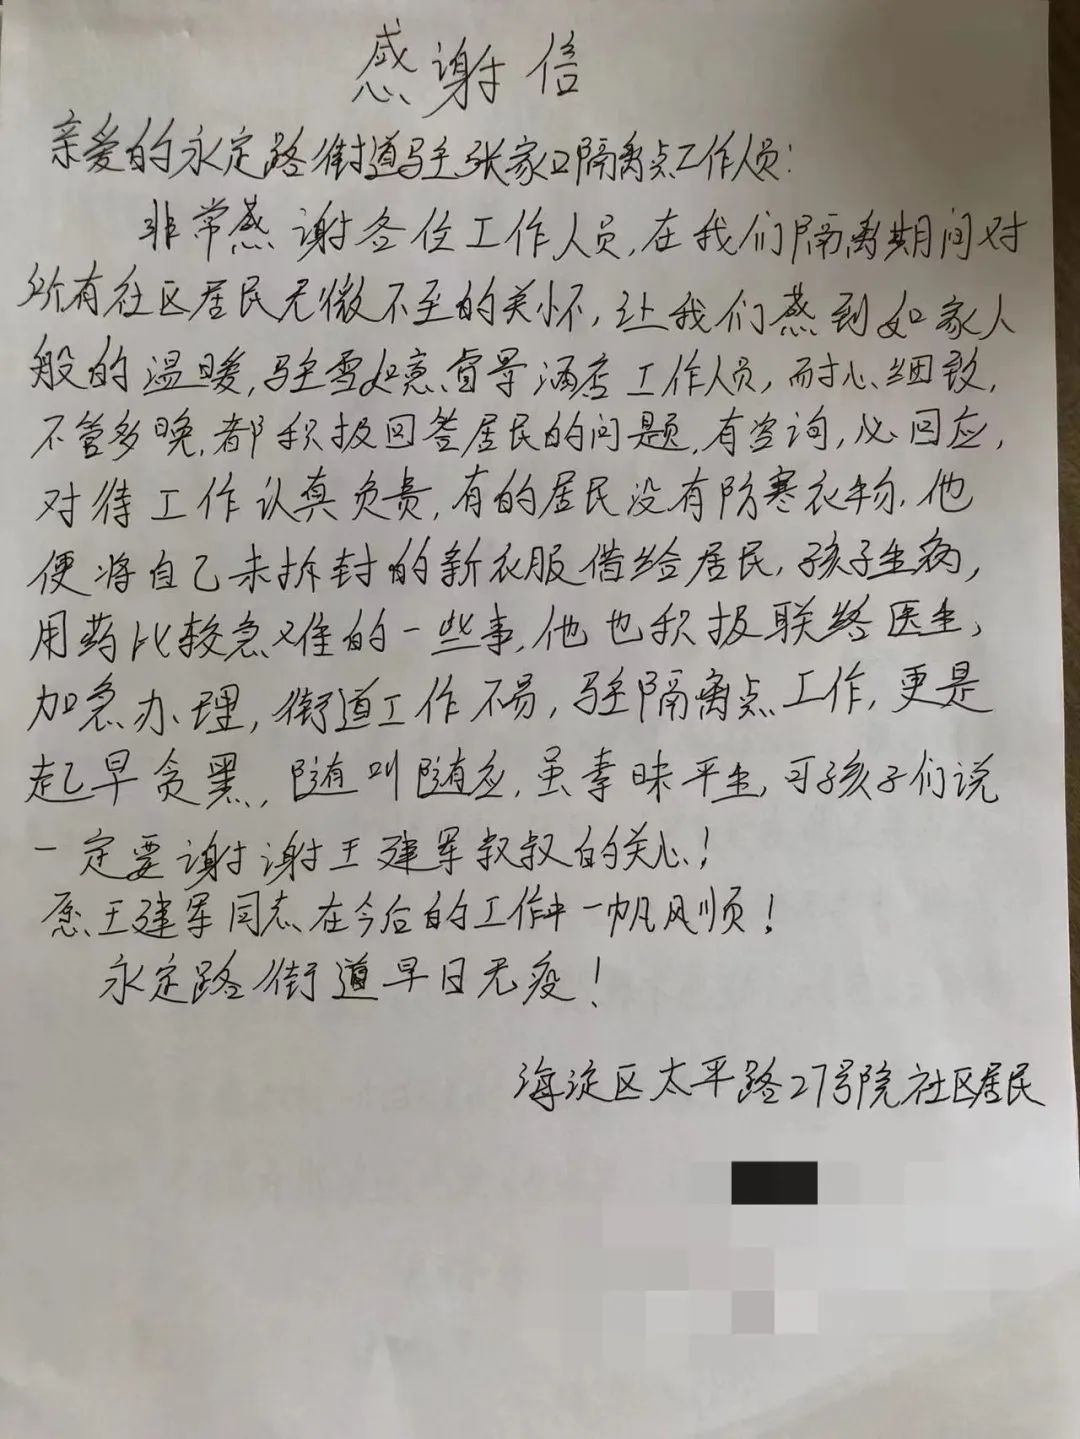 感谢信
亲爱的永定路街道驻张家口隔离点工作人员：
非常感谢各位工作人员，在我们隔离期间对
所有社区居民无微不至的关怀，让我们感到如家人
般的温暖，驻雪如意睿景酒店工作人员，耐心、细致，
不管多晚，都积极回答居民的问题，有咨询，必回应，
对待工作认真负责，有的居民没有防寒衣物，他
便将自己未拆封的新衣服借给居民，孩子生病，
用药比较急难的一些事，他也积极联络医生，
加急办理，街道工作不易，驻隔离点工作，更是
起早贪黑，随叫随应，虽素昧平生，可孩子们说
一定要谢谢王建军叔叔的关心！
愿王建军同志在今后的工作中一帆风顺！
永定路街道早日无疫！
海淀区太平路27号院社区居民